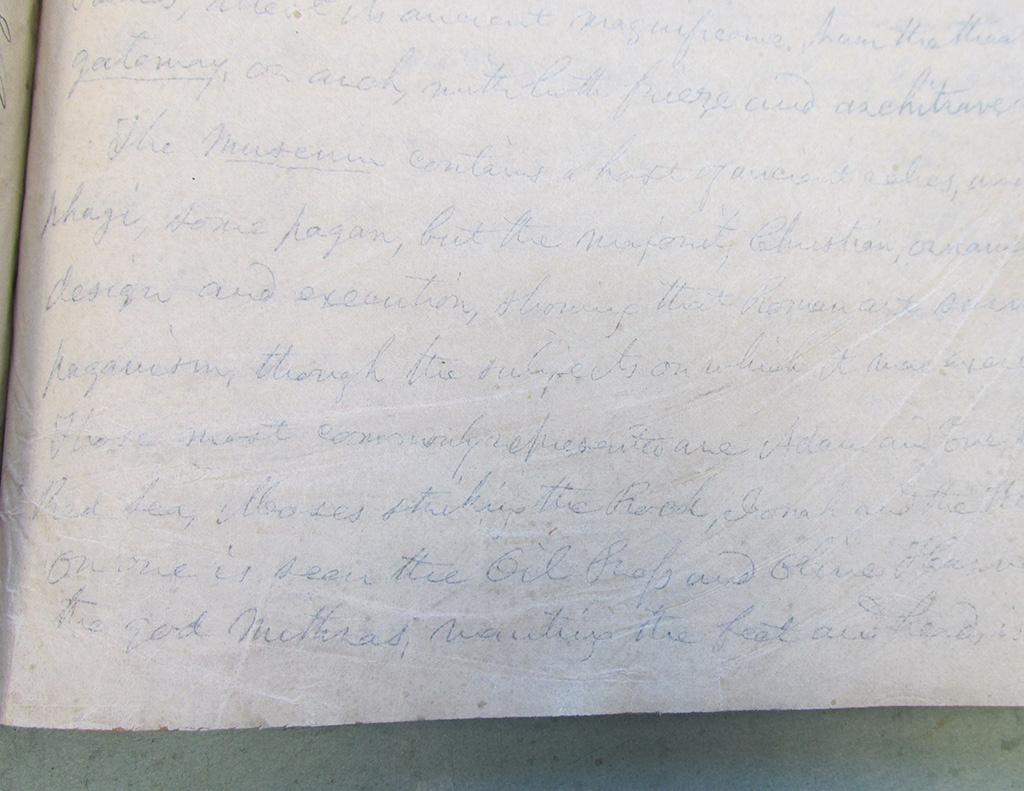 its ancient magnificence. from the
gateway, or arch, with both frieze and architrave
The Museum contains a host of ancient relics,
phagi, some pagan, but the majority Christian,
design and execution, showing that Roman art
paganism, though the subjects on which it was
Those most commonly represented are Adam and Eve,
Red Sea, Moses striking the Rock, Jonah and the
on one is seen the Oil Press and Olive
the god Mithras, wanting the feet and head, is